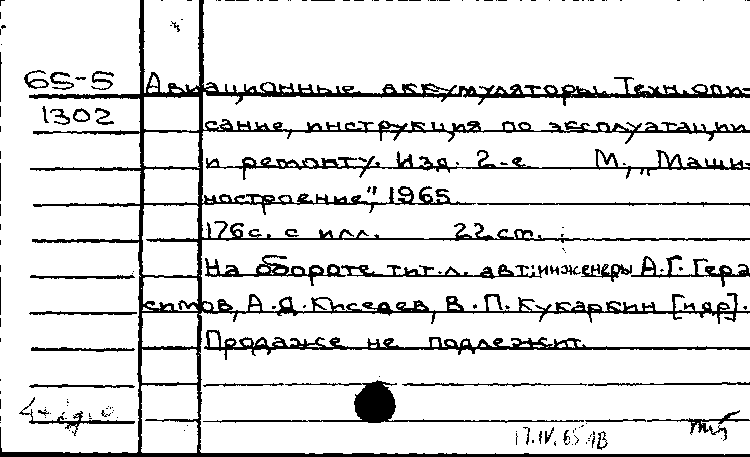 65-5 Авиационные аккумуляторы. Техн. опи-
1302 сание, инструкция по эксплуатации
и ремонту. Изд. 2-е М., „Маши-
ностроение", 1965.
176 с. с илл. 22 см.
На обороте тит. л. авт.: инженеры А.Г. Гера-
симов, А.Д. Киселев, В.П. Кукаркин [и др].
Продаже не подлежит.
17.IV.65